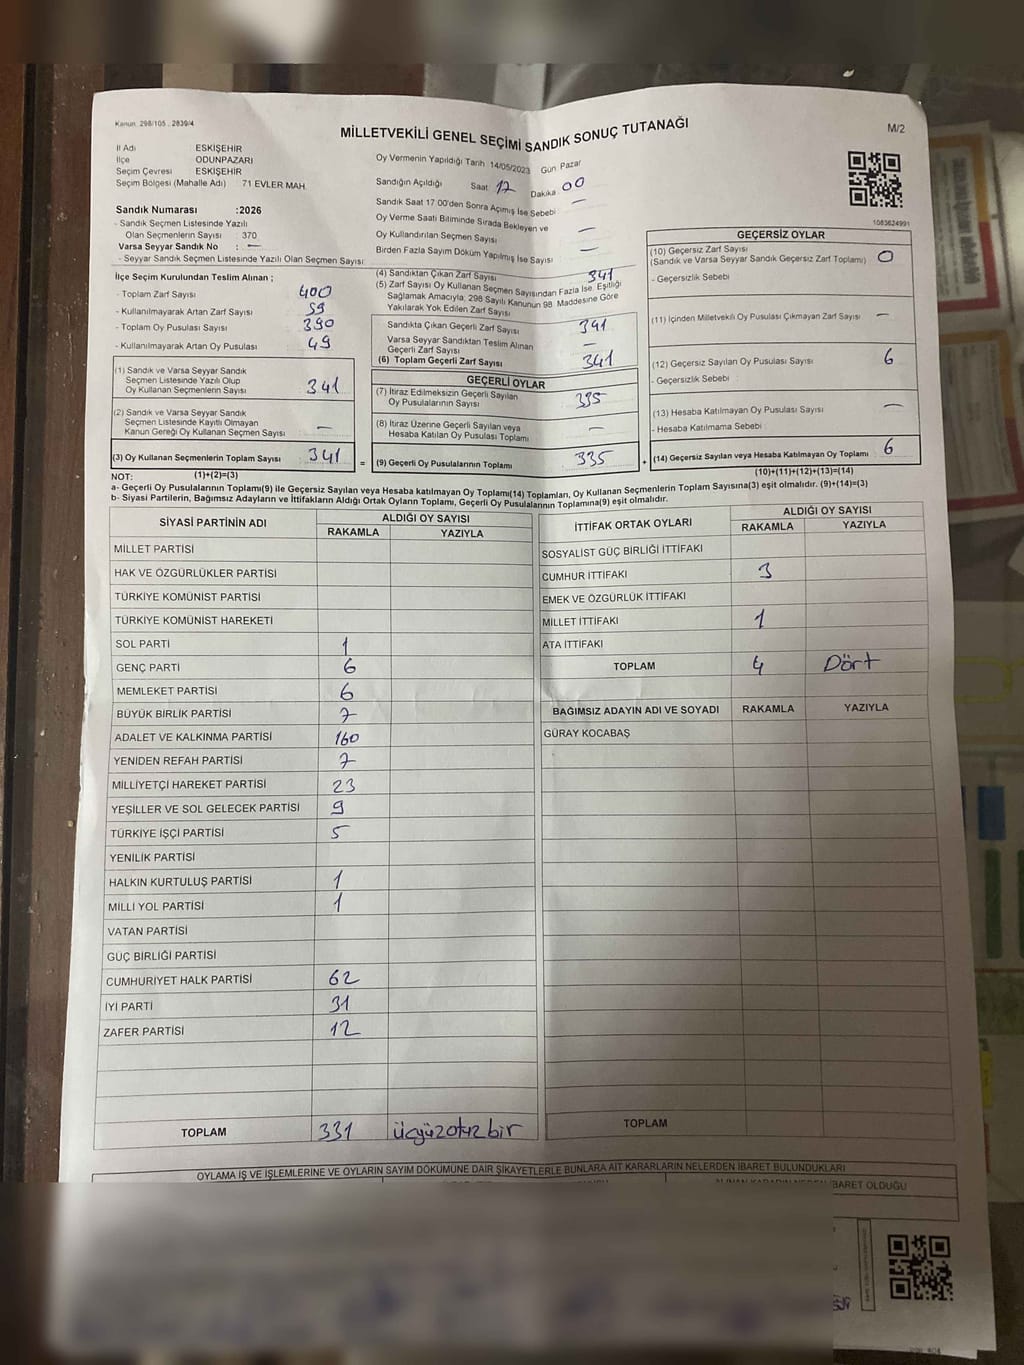 Kanun: 298/105 , 2839/4
MİLLETVEKİLİ GENEL SEÇİMİ SANDIK SONUÇ TUTANAĞI
M/2
İl Adı ESKİŞEHİR
İlçe ODUNPAZARI
Seçim Çevresi ESKİŞEHİR
Seçim Bölgesi (Mahalle Adı) 71 EVLER MAH.
Sandık Numarası :2026
- Sandık Seçmen Listesinde Yazılı
Olan Seçmenlerin Sayısı 370
Varsa Seyyar Sandık No : —
- Seyyar Sandık Seçmen Listesinde Yazılı Olan Seçmen Sayısı:
Oy Vermenin Yapıldığı Tarih 14/05/2023 Gün Pazar
Sandığın Açıldığı Saat 17 Dakika 00
Sandık Saat 17.00'den Sonra Açımış İse Sebebi —
Oy Verme Saati Bitiminde Sırada Bekleyen ve
Oy Kullandırılan Seçmen Sayısı —
Birden Fazla Sayım Döküm Yapılmış İse Sayısı —
1083624991
İlçe Seçim Kurulundan Teslim Alınan ;
- Toplam Zarf Sayısı 400
- Kullanılmayarak Artan Zarf Sayısı 59
- Toplam Oy Pusulası Sayısı 390
- Kullanılmayarak Artan Oy Pusulası 49
(1) Sandık ve Varsa Seyyar Sandık
Seçmen Listesinde Yazılı Olup
Oy Kullanan Seçmenlerin Sayısı 341
(2) Sandık ve Varsa Seyyar Sandık
Seçmen Listesinde Kayıtlı Olmayan
Kanun Gereği Oy Kullanan Seçmen Sayısı —
(3) Oy Kullanan Seçmenlerin Toplam Sayısı 341
(4) Sandıktan Çıkan Zarf Sayısı 341
(5) Zarf Sayısı Oy Kullanan Seçmen Sayısından Fazla İse, Eşitliği
Sağlamak Amacıyla; 298 Sayılı Kanunun 98. Maddesine Göre
Yakılarak Yok Edilen Zarf Sayısı
Sandıkta Çıkan Geçerli Zarf Sayısı 341
Varsa Seyyar Sandıktan Teslim Alınan
Geçerli Zarf Sayısı —
(6) Toplam Geçerli Zarf Sayısı 341
GEÇERLİ OYLAR
(7) İtiraz Edilmeksizin Geçerli Sayılan
Oy Pusulalarının Sayısı 335
(8) İtiraz Üzerine Geçerli Sayılan veya
Hesaba Katılan Oy Pusulası Toplamı —
= (9) Geçerli Oy Pusulalarının Toplamı 335
GEÇERSİZ OYLAR
(10) Geçersiz Zarf Sayısı 0
(Sandık ve Varsa Seyyar Sandık Geçersiz Zarf Toplamı)
- Geçersizlik Sebebi :
(11) İçinden Milletvekili Oy Pusulası Çıkmayan Zarf Sayısı —
(12) Geçersiz Sayılan Oy Pusulası Sayısı 6
- Geçersizlik Sebebi :
(13) Hesaba Katılmayan Oy Pusulası Sayısı —
- Hesaba Katılmama Sebebi :
+ (14) Geçersiz Sayılan veya Hesaba Katılmayan Oy Toplamı 6
NOT: (1)+(2)=(3)
(10)+(11)+(12)+(13)=(14)
a- Geçerli Oy Pusulalarının Toplamı(9) ile Geçersiz Sayılan veya Hesaba katılmayan Oy Toplamı(14) Toplamları, Oy Kullanan Seçmenlerin Toplam Sayısına(3) eşit olmalıdır. (9)+(14)=(3)
b- Siyasi Partilerin, Bağımsız Adayların ve İttifakların Aldığı Ortak Oyların Toplamı, Geçerli Oy Pusulalarının Toplamına(9) eşit olmalıdır.
SİYASİ PARTİNİN ADI ALDIĞI OY SAYISI
RAKAMLA YAZIYLA
MİLLET PARTİSİ
HAK VE ÖZGÜRLÜKLER PARTİSİ
TÜRKİYE KOMÜNİST PARTİSİ
TÜRKİYE KOMÜNİST HAREKETİ
SOL PARTİ 1
GENÇ PARTİ 6
MEMLEKET PARTİSİ 6
BÜYÜK BİRLİK PARTİSİ 7
ADALET VE KALKINMA PARTİSİ 160
YENİDEN REFAH PARTİSİ 7
MİLLİYETÇİ HAREKET PARTİSİ 23
YEŞİLLER VE SOL GELECEK PARTİSİ 9
TÜRKİYE İŞÇİ PARTİSİ 5
YENİLİK PARTİSİ
HALKIN KURTULUŞ PARTİSİ 1
MİLLİ YOL PARTİSİ 1
VATAN PARTİSİ
GÜÇ BİRLİĞİ PARTİSİ
CUMHURİYET HALK PARTİSİ 62
İYİ PARTİ 31
ZAFER PARTİSİ 12
TOPLAM 331 üçyüzotuzbir
İTTİFAK ORTAK OYLARI ALDIĞI OY SAYISI
RAKAMLA YAZIYLA
SOSYALİST GÜÇ BİRLİĞİ İTTİFAKI
CUMHUR İTTİFAKI 3
EMEK VE ÖZGÜRLÜK İTTİFAKI
MİLLET İTTİFAKI 1
ATA İTTİFAKI
TOPLAM 4 Dört
BAĞIMSIZ ADAYIN ADI VE SOYADI RAKAMLA YAZIYLA
GÜRAY KOCABAŞ
TOPLAM
OYLAMA İŞ VE İŞLEMLERİNE VE OYLARIN SAYIM DÖKÜMÜNE DAİR ŞİKAYETLERLE BUNLARA AİT KARARLARIN NELERDEN İBARET BULUNDUKLARI
İBARET OLDUĞU